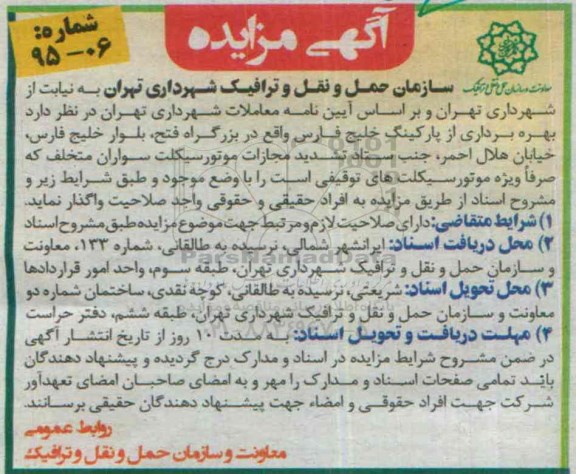 آگهی مزایده
شماره:
۹۵-۰۶
معاونت و سازمان حمل و نقل و ترافیک
سازمان حمل و نقل و ترافیک شهرداری تهران به نیابت از
شهرداری تهران و بر اساس آیین نامه معاملات شهرداری تهران در نظر دارد
بهره برداری از پارکینگ خلیج فارس واقع در بزرگراه فتح، بلوار خلیج فارس،
خیابان هلال احمر، جنب ستاد تشدید مجازات موتورسیکلت سواران متخلف که
صرفاً ویژه موتورسیکلت های توقیفی است را با وضع موجود و طبق شرایط زیر و
مشروح اسناد از طریق مزایده به افراد حقیقی و حقوقی واجد صلاحیت واگذار نماید.
۱) شرایط متقاضی: دارای صلاحیت لازم و مرتبط جهت موضوع مزایده طبق مشروح اسناد
۲) محل دریافت اسناد: ایرانشهر شمالی، نرسیده به طالقانی، شماره ۱۳۳، معاونت
و سازمان حمل و نقل و ترافیک شهرداری تهران، طبقه سوم، واحد امور قراردادها
۳) محل تحویل اسناد: شریعتی، نرسیده به طالقانی، کوچه نقدی، ساختمان شماره دو
معاونت و سازمان حمل و نقل و ترافیک شهرداری تهران، طبقه ششم، دفتر حراست
۴) مهلت دریافت و تحویل اسناد: به مدت ۱۰ روز از تاریخ انتشار آگهی
در ضمن مشروح شرایط مزایده در اسناد و مدارک درج گردیده و پیشنهاد دهندگان
باید تمامی صفحات اسناد و مدارک را مهر و به امضای صاحبان امضای تعهدآور
شرکت جهت افراد حقوقی و امضاء جهت پیشنهاد دهندگان حقیقی برسانند.
روابط عمومی
معاونت و سازمان حمل و نقل و ترافیک
ParsNamadData